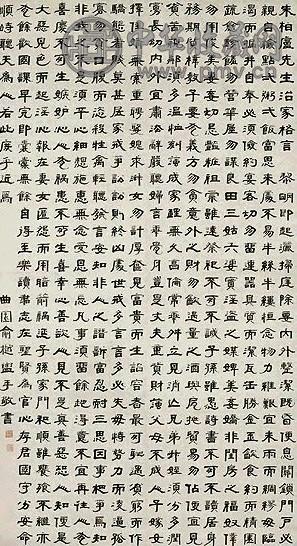 朱柏廬先生治家格言 黎明即起灑掃庭除要內外整潔既昏便息關鎖門戶必
親自檢點一粥一飯當思來處不易半絲半縷恆念物力維艱宜未雨而綢繆毋臨
渴而掘井自奉必須儉約宴客切勿留連器具質而潔瓦缶勝金玉飲食約而精園
蔬愈珍羞勿營華屋勿謀良田三姑六婆實淫盜之媒婢美妾嬌非閨房之福奴僕
勿用俊美妻妾切忌豔粧祖宗雖遠祭祀不可不誠子孫雖愚經書不可不讀居身
務期質樸教子要有義方勿貪意外之財勿飲過量之酒與肩挑貿易毋佔便宜見
貧苦親鄰須多溫恤刻薄成家理無久享倫常乖舛立見消亡兄弟叔姪須分多潤
寡長幼內外宜法肅辭嚴聽婦言乖骨肉豈是丈夫重貲財薄父母不成人子嫁女
擇佳婿毋索重聘娶媳求淑女勿計厚奩見富貴而生諂容者最可恥遇貧窮而作
驕態者賤莫甚居家戒爭訟訟則終凶處世戒多言言多必失毋恃勢力而凌逼孤
寡勿貪口腹而恣殺牲禽輕聽發言安知非人之譖訴當忍耐三思因事相爭焉知
非我之不是須平心暗想施惠無念受恩莫忘凡事當留餘地得意不宜再往人有
喜慶不可生妒忌心人有禍患不可生喜幸心善欲人見不是真善惡恐人知便是
大惡見色而起淫心報在妻女匿怨而用暗箭禍延子孫家門和順雖饔飧不繼亦
有餘歡國課早完即囊橐無餘自得至樂讀書志在聖賢為官心存君國守分安命
順時聽天為人若此庶乎近焉
曲園俞樾盥手敬書